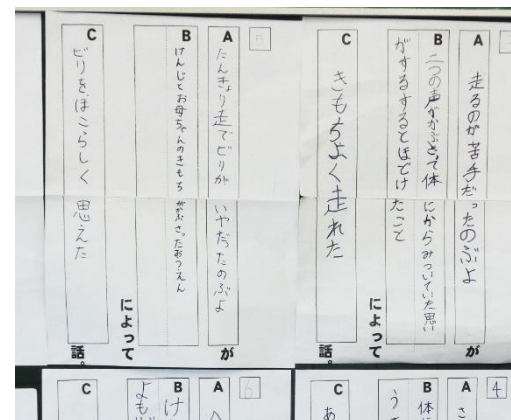 A
走るのが苦手だったのぶよ
が
B
二つの声がかぶさって体にからみついていた思い
がするするとほどけたこと
によって
C
きもちよく走れた
話。
A
たんきょり走でビリがいやだったのぶよ
が
B
けんじとお母ちゃんのきもちがかぶさったおうえん
によって
C
ビリをほこらしく思えた
話。
4
A
さ
B
体
う
C
あ
6
A
B
け
よも
C